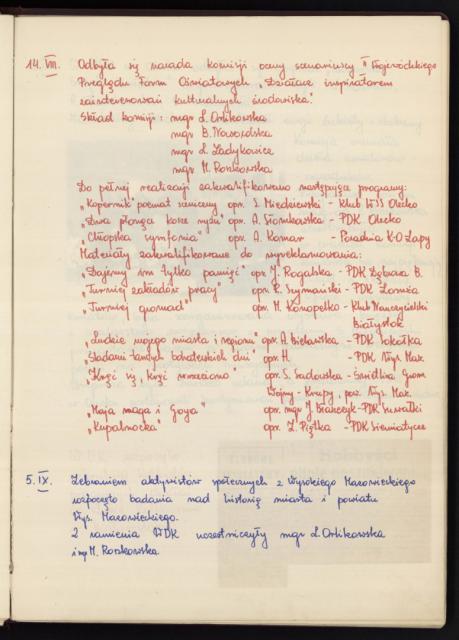 14.VIII. Odbyła się narada komisji oceny scenariuszy "Wojewódzkiego
Przeglądu Form Oświatowych "Działacz inspiratorem
zainteresowań kulturalnych środowiska".
Skład komisji: mgr L. Orlikowska
mgr B. Nawrolska
mgr L. Ladykowicz
mgr M. Roszkowska
Do pełnej realizacji zakwalifikowano następujące programy:
"Kopernik" poemat sceniczny opr. S. Miedziewski - Klub WSS Olecko
"Dwa płonące kosze" opr. A. Słomkowska - PDK Olecko
"Chłopska symfonia" opr. A. Komar - Poradnia K-O Łapy
Materiały zakwalifikowane do wyreklamowania:
"Dajemy im tylko pamięć" opr. J. Rogalska - PDK Dąbrowa B.
"Turniej zakładów pracy" opr. R. Szymański - PDK Łomża
"Turniej gromad" opr. M. Konopelko - Klub Nauczycielski
Białystok
"Ludzie mojego miasta i regionu" opr. A. Bielawska - PDK Sokółka
"Śladami tamtych bohaterskich dni" opr. H. - PDK Wys. Maz.
"Kręć się, kręć wrzeciono" opr. S. Sadowska - Świetlica Grom.
Wojny-Krupy, pow. Wys. Maz.
"Maja naga i Goya" opr. mgr J. - PDK Suwałki
"Kupalnocka" opr. Z. Piętka - PDK Siemiatycze
5.IX. Zebraniem aktywistów społecznych z Wysokiego Mazowieckiego
rozpoczęto badania nad historią miasta i powiatu
Wys. Mazowieckiego.
Z ramienia WDK uczestniczyły mgr L. Orlikowska
i mgr M. Roszkowska